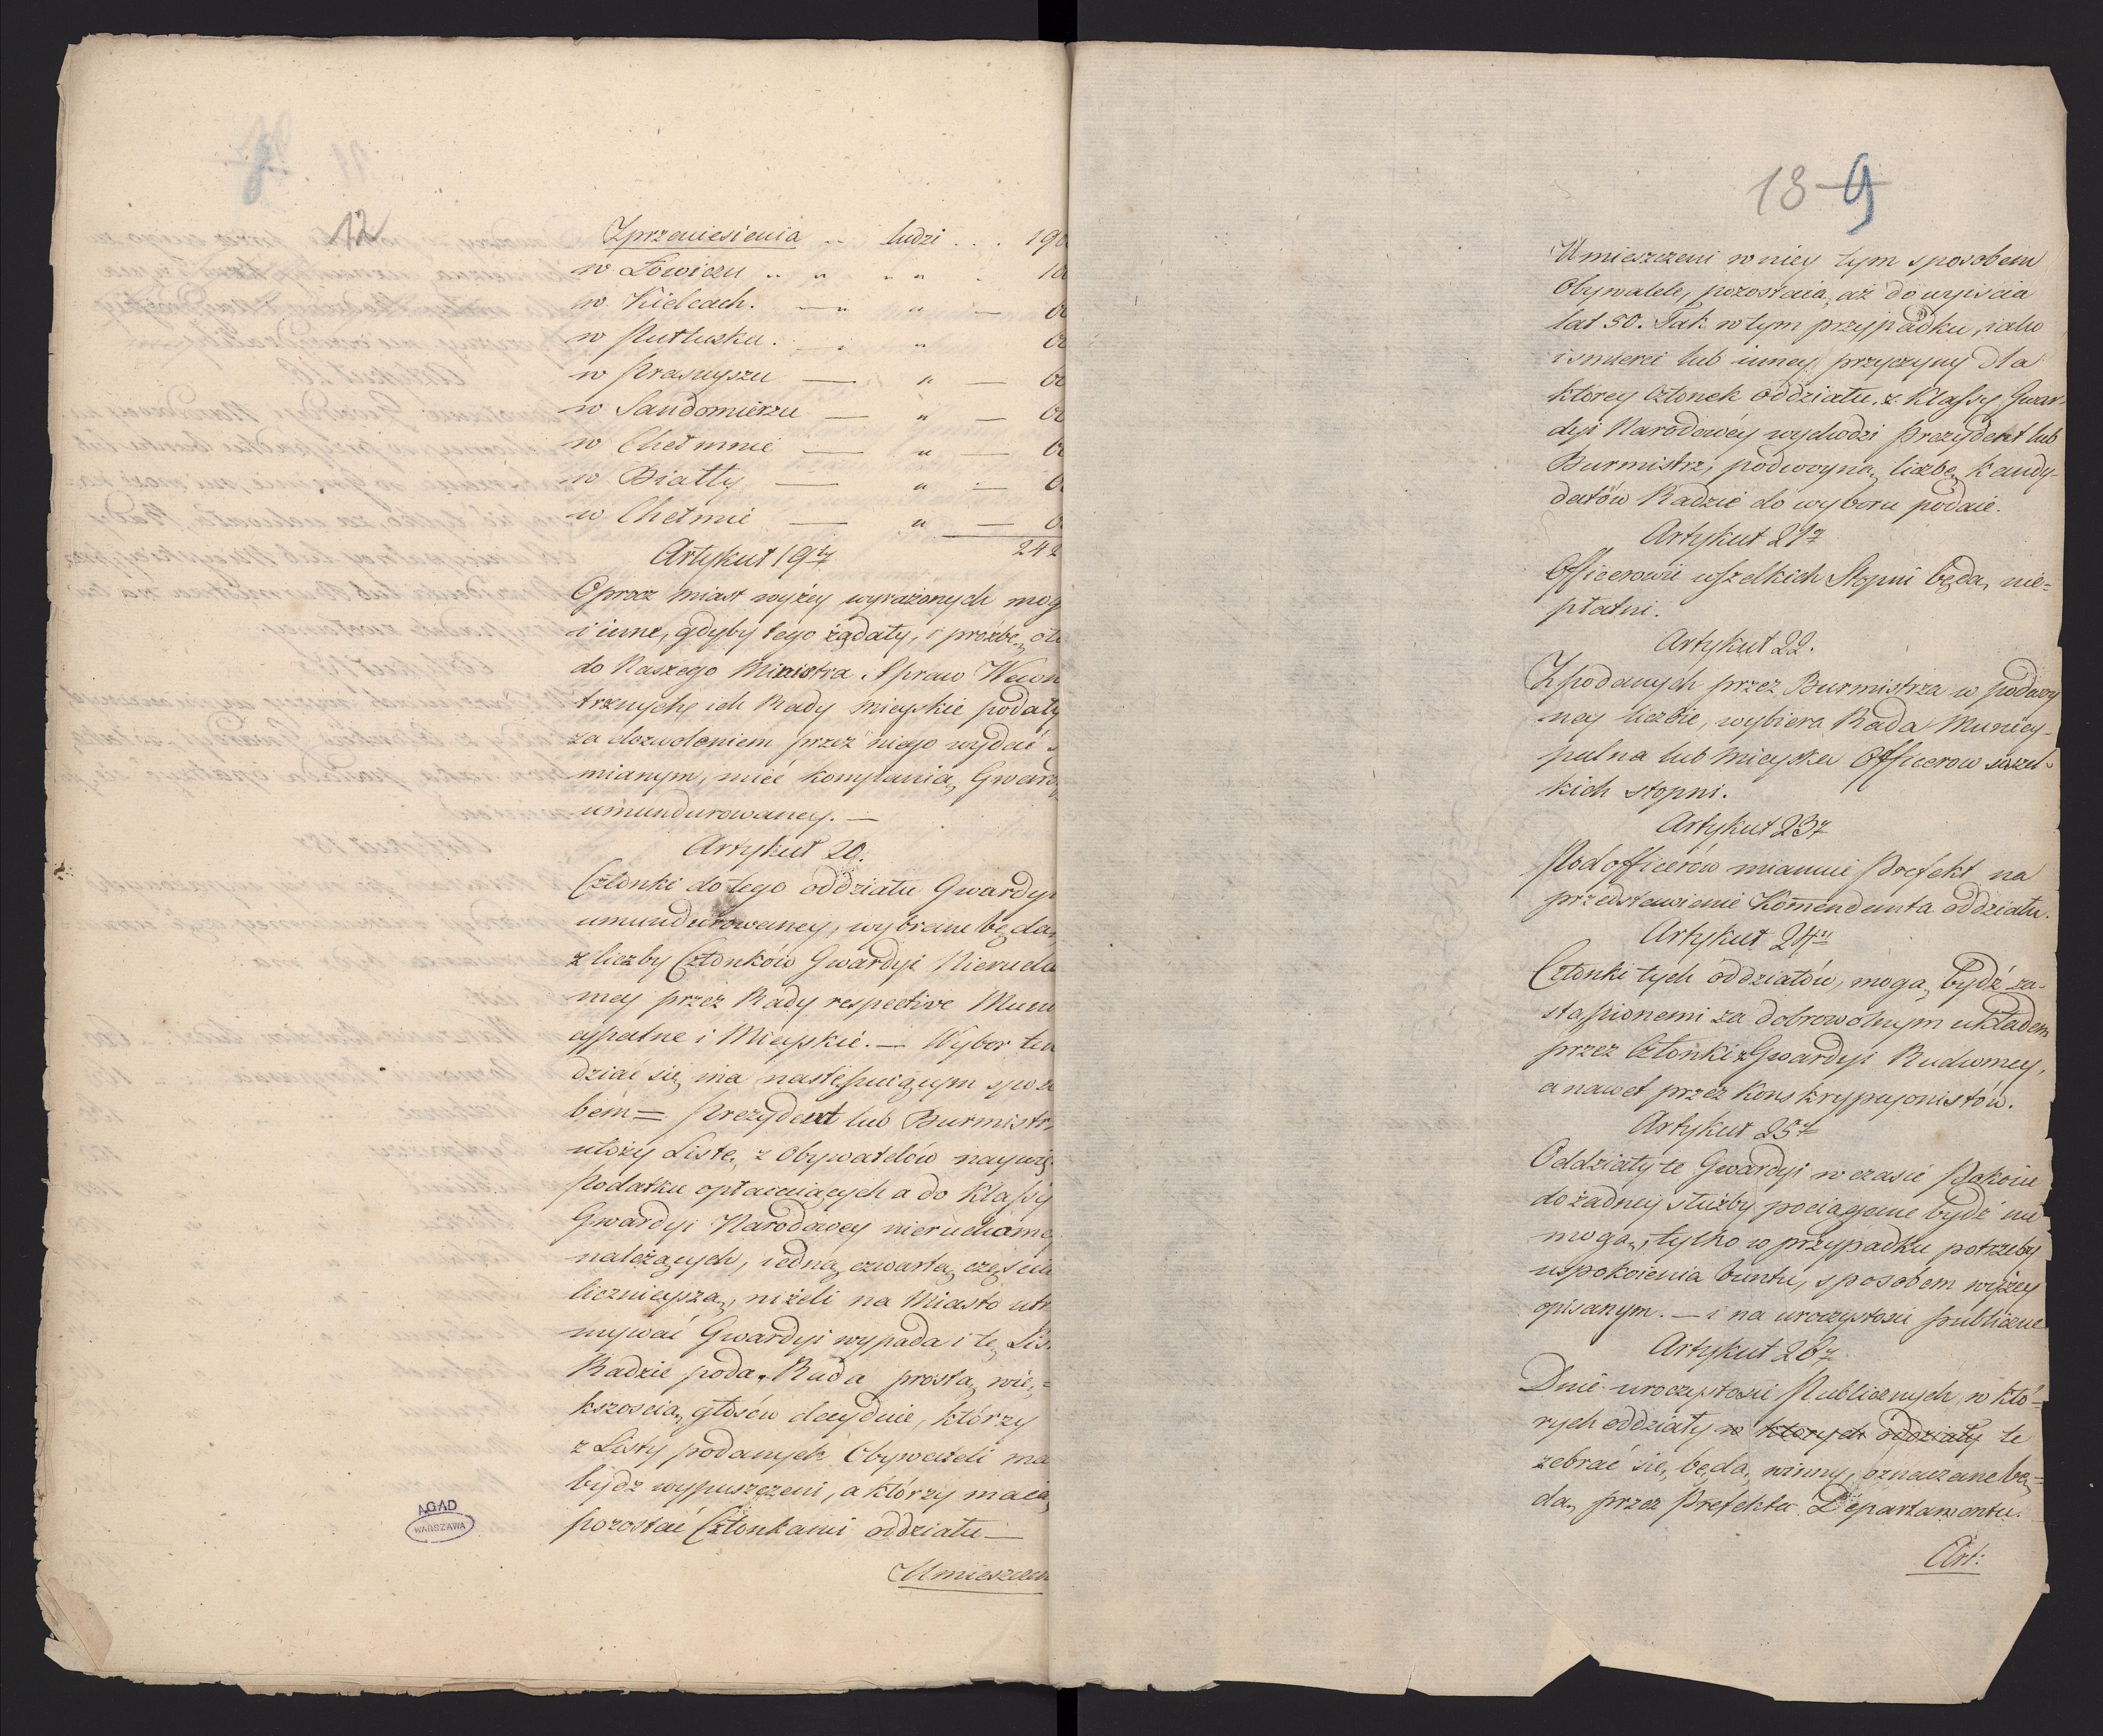 12
Zprzeniesienia .. ludzi . . . 190
w Łowiczu .. " " " . 10
w Kielcach. — " " — 60
w Pułtusku . — . " 60
w Prasnyszu — " — 60
w Sandomierzu — " — 60
w Chełmnie — " — 60
w Białły — " — 6
w Chełmie — " — 6
242
Artykuł 19ty
Oprocz miast wyżey wyrażonych mog
i inne, gdyby tego żądały, i prożbę
do Naszego Ministra Spraw Wewn
trznych, ich Rady mieyskie podały
za dozwoleniem przez niego wydać
mianym, mieć kompanią Gward
umundurowaney. —
Artykuł 20.
Członki do tego oddziału Gwardyi
umundurowaney, wybrane będą
z liczby Członków Gwardyi Nierucho
mey przez Rady respective Muni
cypalne i Mieyskie. — Wybor ten
dziać się ma następuiącym sposo
bem = Prezydent lub Burmistrz
ułoży Listę z Obywatelów naywię
podatku opłacaiących a do Klassy
Gwardyi Narodowey nieruchomey
należących, iedną czwartą częścią
licznieyszą, niżeli na Miasto utr
mywać Gwardyi wypada i tę Lis
Radzie poda. Rada prostą wię=
kszoscią głosów decyduie, którzy
z Listy podanych Obywateli ma
bydz wypuszczeni, a którzy maią
pozostać Członkami oddziału —
Umieszczen
AGAD
WARSZAWA
13 9
Umieszczeni w niey tym sposobem
Obywatele, pozostaią aż do wyiscia
lat 50. Tak w tym przypadku, iako
i smierci lub inney przyczyny dla
ktorey członek oddziału, z Klassy Gwar-
dyi Narodowéy wychodzi Prezydent lub
Burmistrz, podwoyną liczbę kandy-
datów Radzie do wyboru podaie.
Artykuł 21y
Officerowie wszelkich Stopni będą nie=
płatni.
Artykuł 22.
Z podanych przez Burmistrza w podwoy
ney liczbie, wybiera Rada Municy-
palna lub mieyska Officerow wszel-
kich stopni.
Artykuł 23y
Podofficerów mianuie Prefekt na
przedstawienie Kom̄endanta oddziału.
Artykuł 24y
Członki tych oddziałów, mogą bydź za-
stąpionemi za dobrowolnym układem
przez Członki z Gwardyi Ruchomey,
a nawet przez Konskrypcyonistów.
Artykuł 25y
Oddziały te Gwardyi w czasie Pokoiu
do żadney służby pociągane bydź nie
mogą, tylko w przypadku potrzeby
uspokoienia buntu, sposobem wyżey
opisanym. — i na uroczystosci publiczne
Artykuł 26y
Dnie uroczystosci Publicznych, w któ=
rych oddziały w ktorych oddziały te
zebrać się będą winny, oznaczane bę=
dą przez Prefekta Departamentu.
Art: